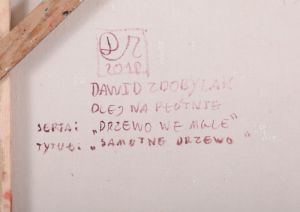 2018
DAWID ZDOBYLAK
OLEJ NA PŁÓTNIE
SERIA: „DRZEWO WE MGLE"
TYTUŁ: „SAMOTNE DRZEWO"